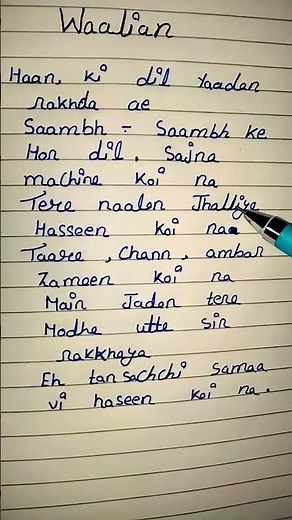 Waalian
Haan, ki dil yaadan
rakhda ae
Saambh - Saambh ke
Hor dil, Sajna
machine koi na
Tere naalon Jhalliye
Hasseen koi naa
Taare, Chann, ambar
Zameen koi na
Main Jadon tere
Modhe utte sir
rakkhaya
Eh tan sachchi samaa
vi haseen koi na.